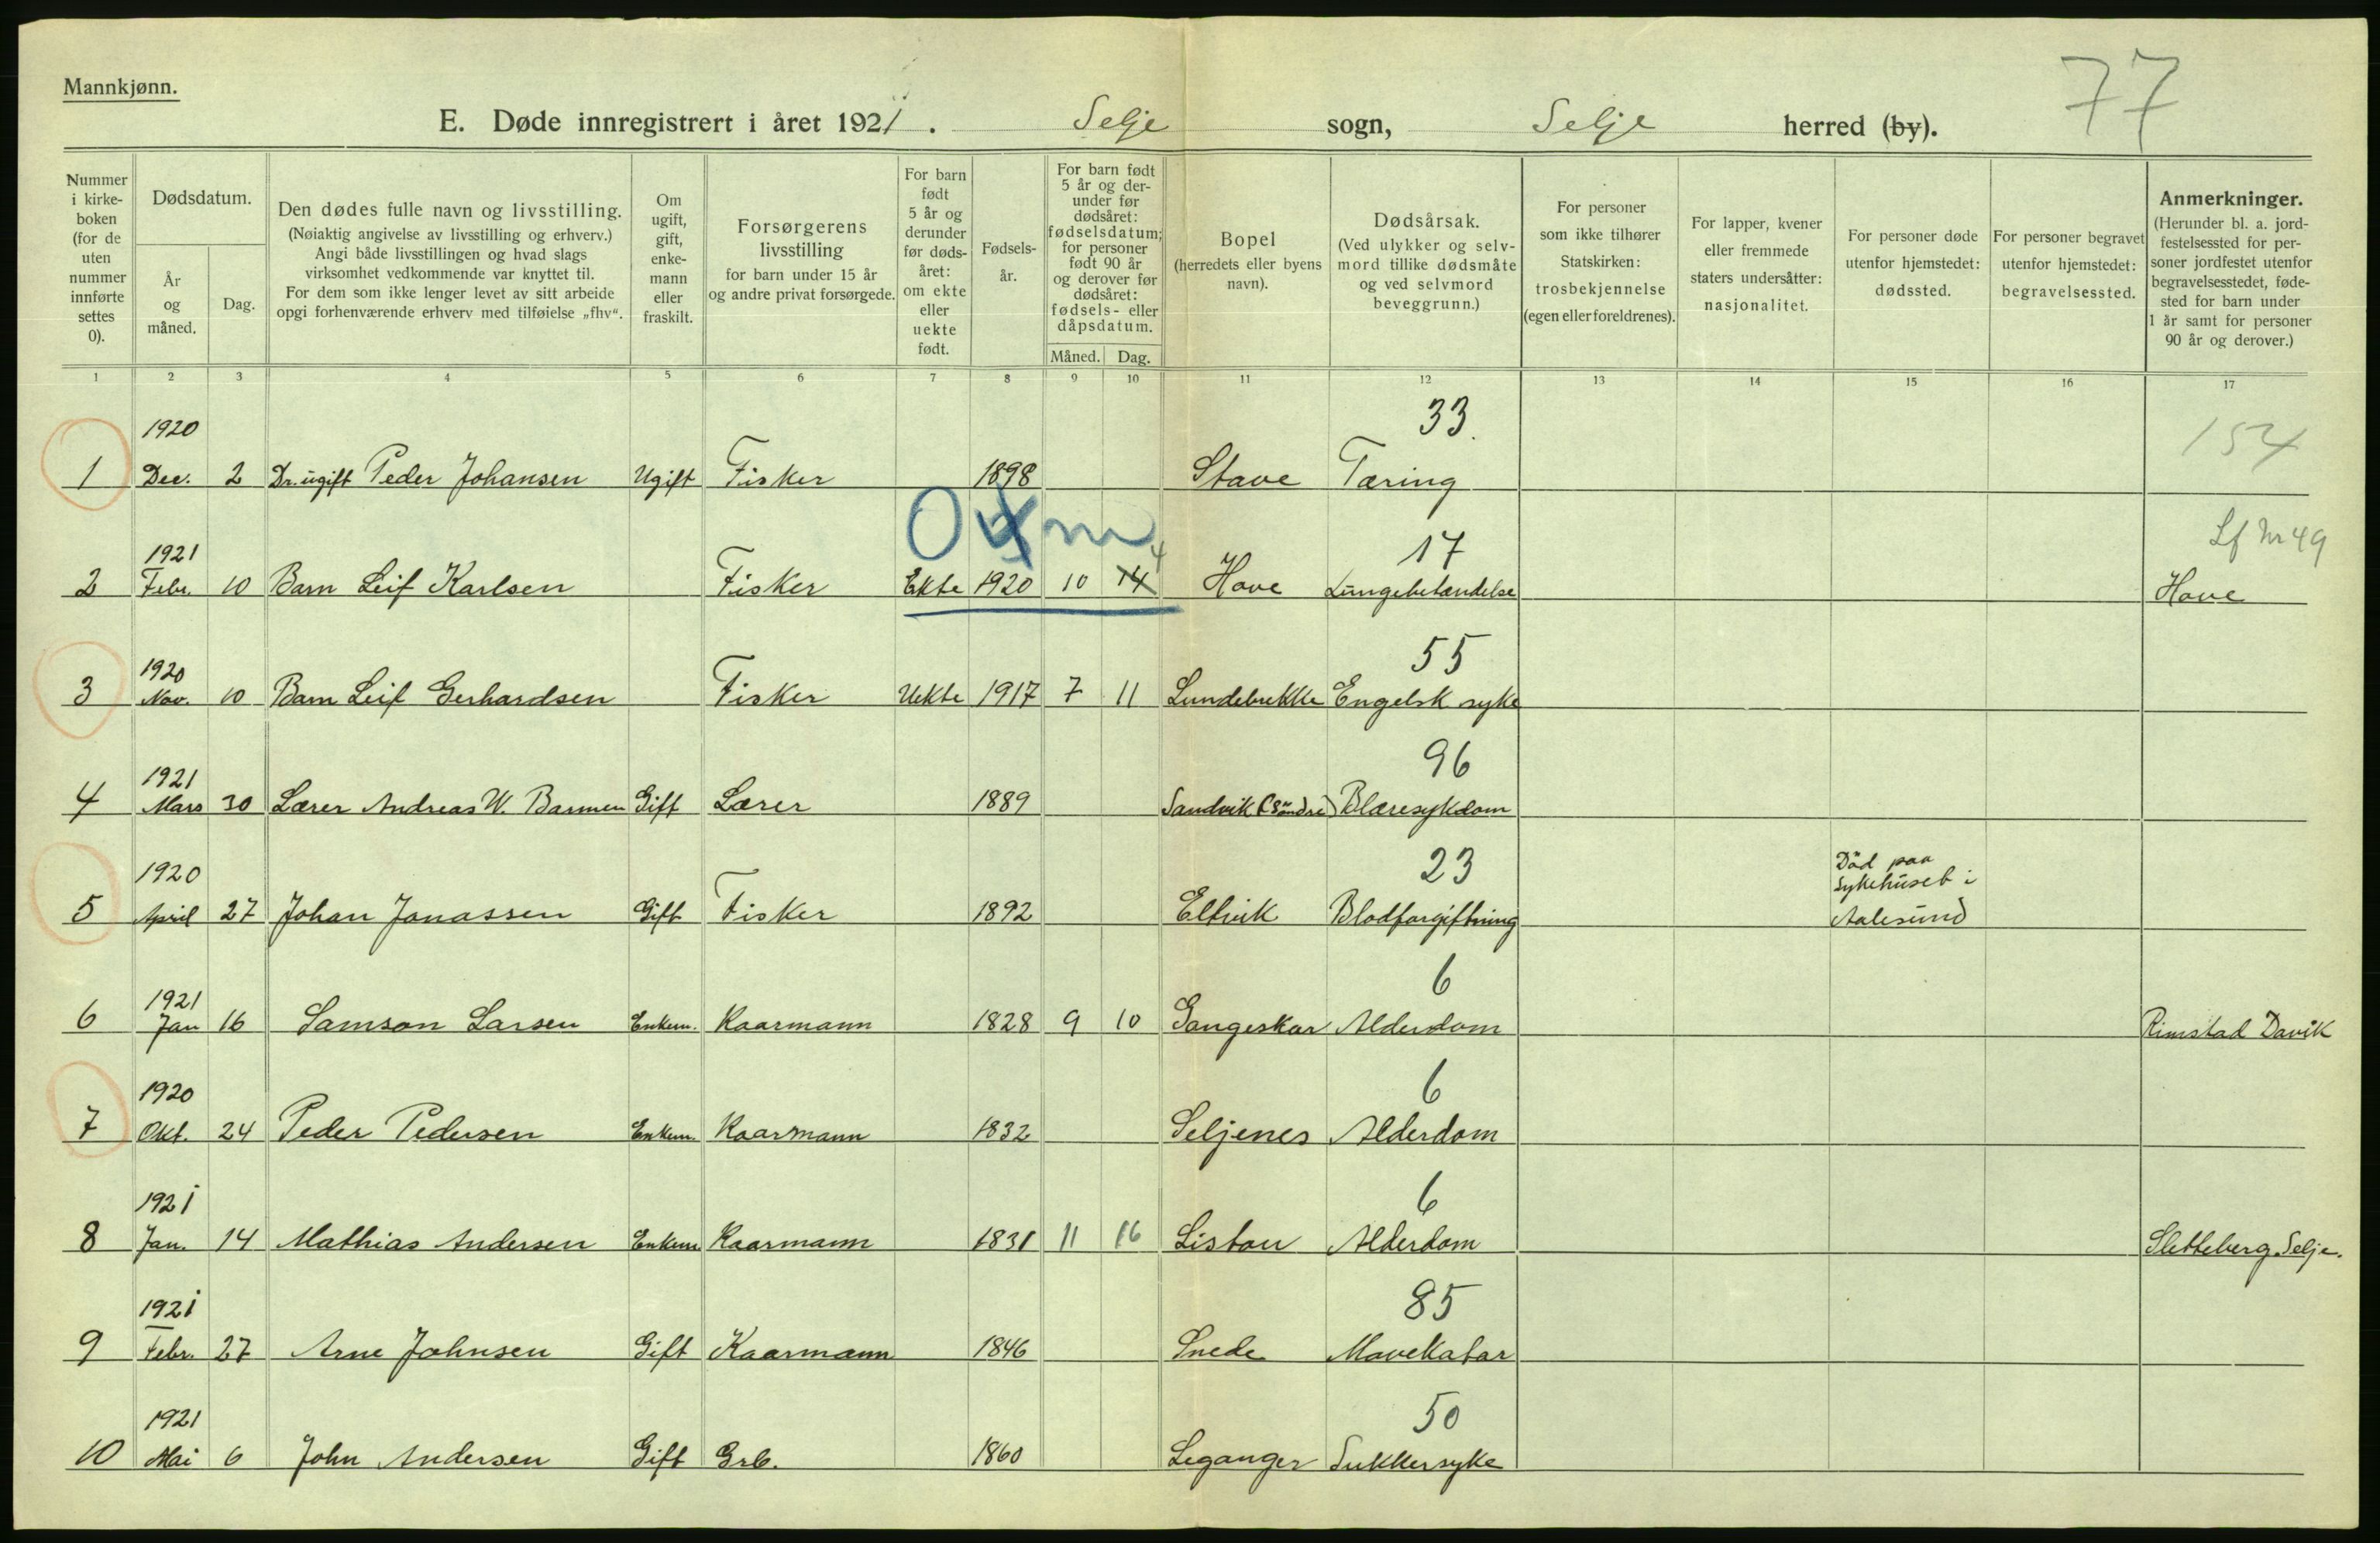 Mannkjønn.
77
E. Døde innregistrert i året 1921. Selje sogn, Selje herred (by).
Nummer i kirke-boken (for de uten nummer innførte settes 0).
Dødsdatum.
År og måned.
Dag.
Den dødes fulle navn og livsstilling.
(Nøiaktig angivelse av livsstilling og erhverv.)
Angi både livsstillingen og hvad slags
virksomhet vedkommende var knyttet til.
For dem som ikke lenger levet av sitt arbeide
opgi forhenværende erhverv med tilføielse „fhv“.
Om ugift, gift, enke-mann eller fraskilt.
Forsørgerens livsstilling
for barn under 15 år
og andre privat forsørgede.
For barn født 5 år og derunder før døds-året: om ekte eller uekte født.
Fødsels-år.
For barn født 5 år og der-under før dødsåret: fødselsdatum; for personer født 90 år og derover før dødsåret: fødsels- eller dåpsdatum.
Måned. Dag.
Bopel
(herredets eller byens navn).
Dødsårsak.
(Ved ulykker og selv-mord tillike dødsmåte og ved selvmord beveggrunn.)
For personer som ikke tilhører Statskirken: trosbekjennelse (egen eller foreldrenes).
For lapper, kvener eller fremmede staters undersåtter: nasjonalitet.
For personer døde utenfor hjemstedet: dødssted.
For personer begravet utenfor hjemstedet: begravelsessted.
Anmerkninger.
(Herunder bl. a. jord-festelsessted for per-soner jordfestet utenfor begravelsesstedet, føde-sted for barn under 1 år samt for personer 90 år og derover.)
1 2 3 4 5 6 7 8 9 10 11 12 13 14 15 16 17
1920 33 154
1 Dec. 2 Dr. ugift Peder Johansen Ugift Fisker 1898 Stave Tæring
1921 4 17 Lf Nr 49
2 Febr. 10 Barn Leif Karlsen Fisker Ekte 1920 10 14 Hove Lungebetændelse Hove
1920 55
3 Nov. 10 Barn Leif Gerhardsen Fisker Uekte 1917 7 11 Lundebrekke Engelsk syke
1921 96
4 Mars 30 Lærer Andreas W. Barmen Gift Lærer 1889 Sandvik (Söndre) Blæresykdom
1920 23 Död paa sykehuset i
5 April 27 Johan Jonassen Gift Fisker 1892 Eltvik Blodforgiftning Aalesund
1921 6
6 Jan 16 Samson Larsen Enkem. Kaarmann 1828 9 10 Gangeskar Alderdom Rimstad Davik
1920 6
7 Okt. 24 Peder Pedersen Enkem. Kaarmann 1832 Seljenes Alderdom
1921 6
8 Jan. 14 Mathias Andersen Enkem Kaarmann 1831 11 16 Listou Alderdom Sletteberg Selje.
1921 85
9 Febr. 27 Arne Johnsen Gift Kaarmann 1846 Snede Mavekatar
1921 50
10 Mai 6 John Andersen Gift Grb. 1860 Leganger Sukkersyke